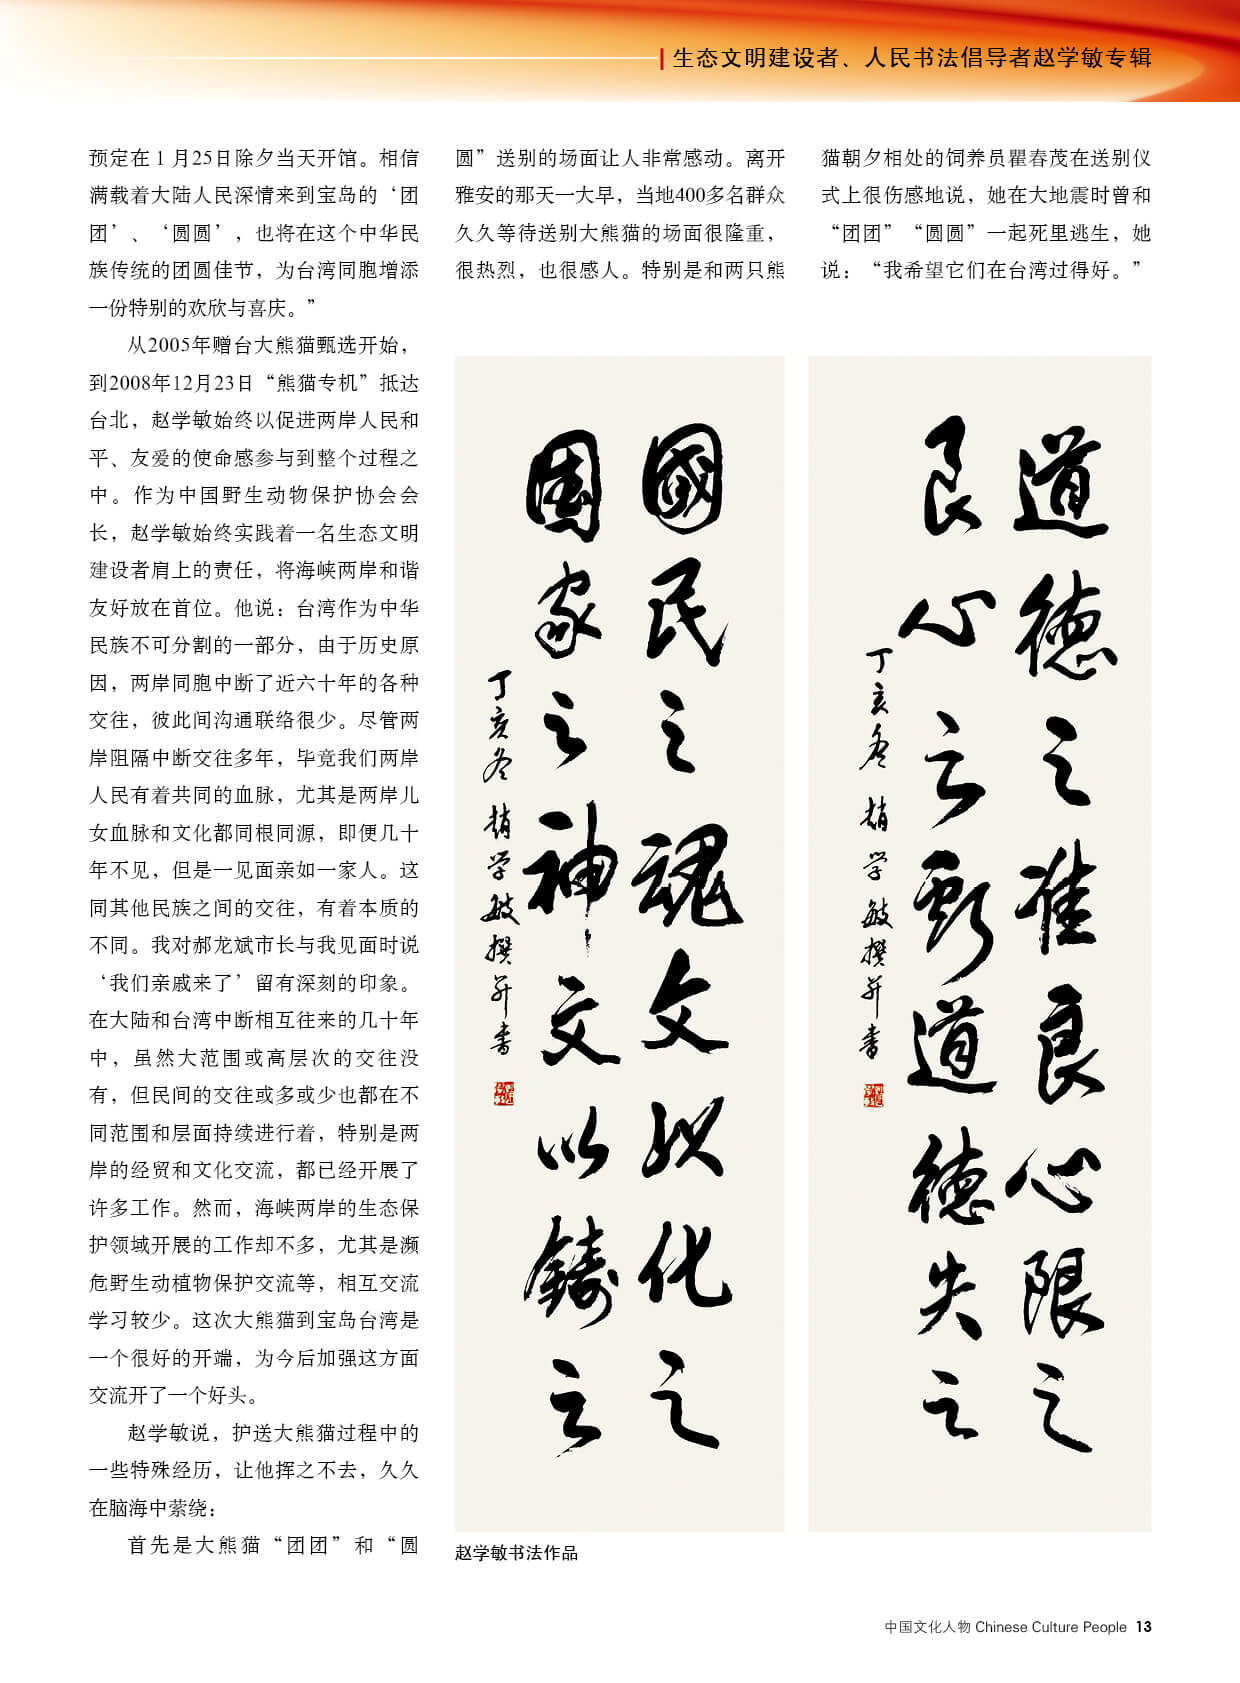 生态文明建设者、人民书法倡导者赵学敏专辑
预定在1月25日除夕当天开馆。相信
满载着大陆人民深情来到宝岛的‘团
团’、‘圆圆’，也将在这个中华民
族传统的团圆佳节，为台湾同胞增添
一份特别的欢欣与喜庆。”
从2005年赠台大熊猫甄选开始，
到2008年12月23日“熊猫专机”抵达
台北，赵学敏始终以促进两岸人民和
平、友爱的使命感参与到整个过程之
中。作为中国野生动物保护协会会
长，赵学敏始终实践着一名生态文明
建设者肩上的责任，将海峡两岸和谐
友好放在首位。他说：台湾作为中华
民族不可分割的一部分，由于历史原
因，两岸同胞中断了近六十年的各种
交往，彼此间沟通联络很少。尽管两
岸阻隔中断交往多年，毕竟我们两岸
人民有着共同的血脉，尤其是两岸儿
女血脉和文化都同根同源，即便几十
年不见，但是一见面亲如一家人。这
同其他民族之间的交往，有着本质的
不同。我对郝龙斌市长与我见面时说
‘我们亲戚来了’留有深刻的印象。
在大陆和台湾中断相互往来的几十年
中，虽然大范围或高层次的交往没
有，但民间的交往或多或少也都在不
同范围和层面持续进行着，特别是两
岸的经贸和文化交流，都已经开展了
许多工作。然而，海峡两岸的生态保
护领域开展的工作却不多，尤其是濒
危野生动植物保护交流等，相互交流
学习较少。这次大熊猫到宝岛台湾是
一个很好的开端，为今后加强这方面
交流开了一个好头。
赵学敏说，护送大熊猫过程中的
一些特殊经历，让他挥之不去，久久
在脑海中萦绕：
首先是大熊猫“团团”和“圆
圆”送别的场面让人非常感动。离开
雅安的那天一大早，当地400多名群众
久久等待送别大熊猫的场面很隆重，
很热烈，也很感人。特别是和两只熊
猫朝夕相处的饲养员瞿春茂在送别仪
式上很伤感地说，她在大地震时曾和
“团团”“圆圆”一起死里逃生，她
说：“我希望它们在台湾过得好。”
道德之准良心限之
良心之斵道德失之
丁亥冬 赵学敏撰并书
國民之魂文以化之
国家之神文以鑄之
丁亥冬 赵学敏撰并书
赵学敏书法作品
中国文化人物 Chinese Culture People 13